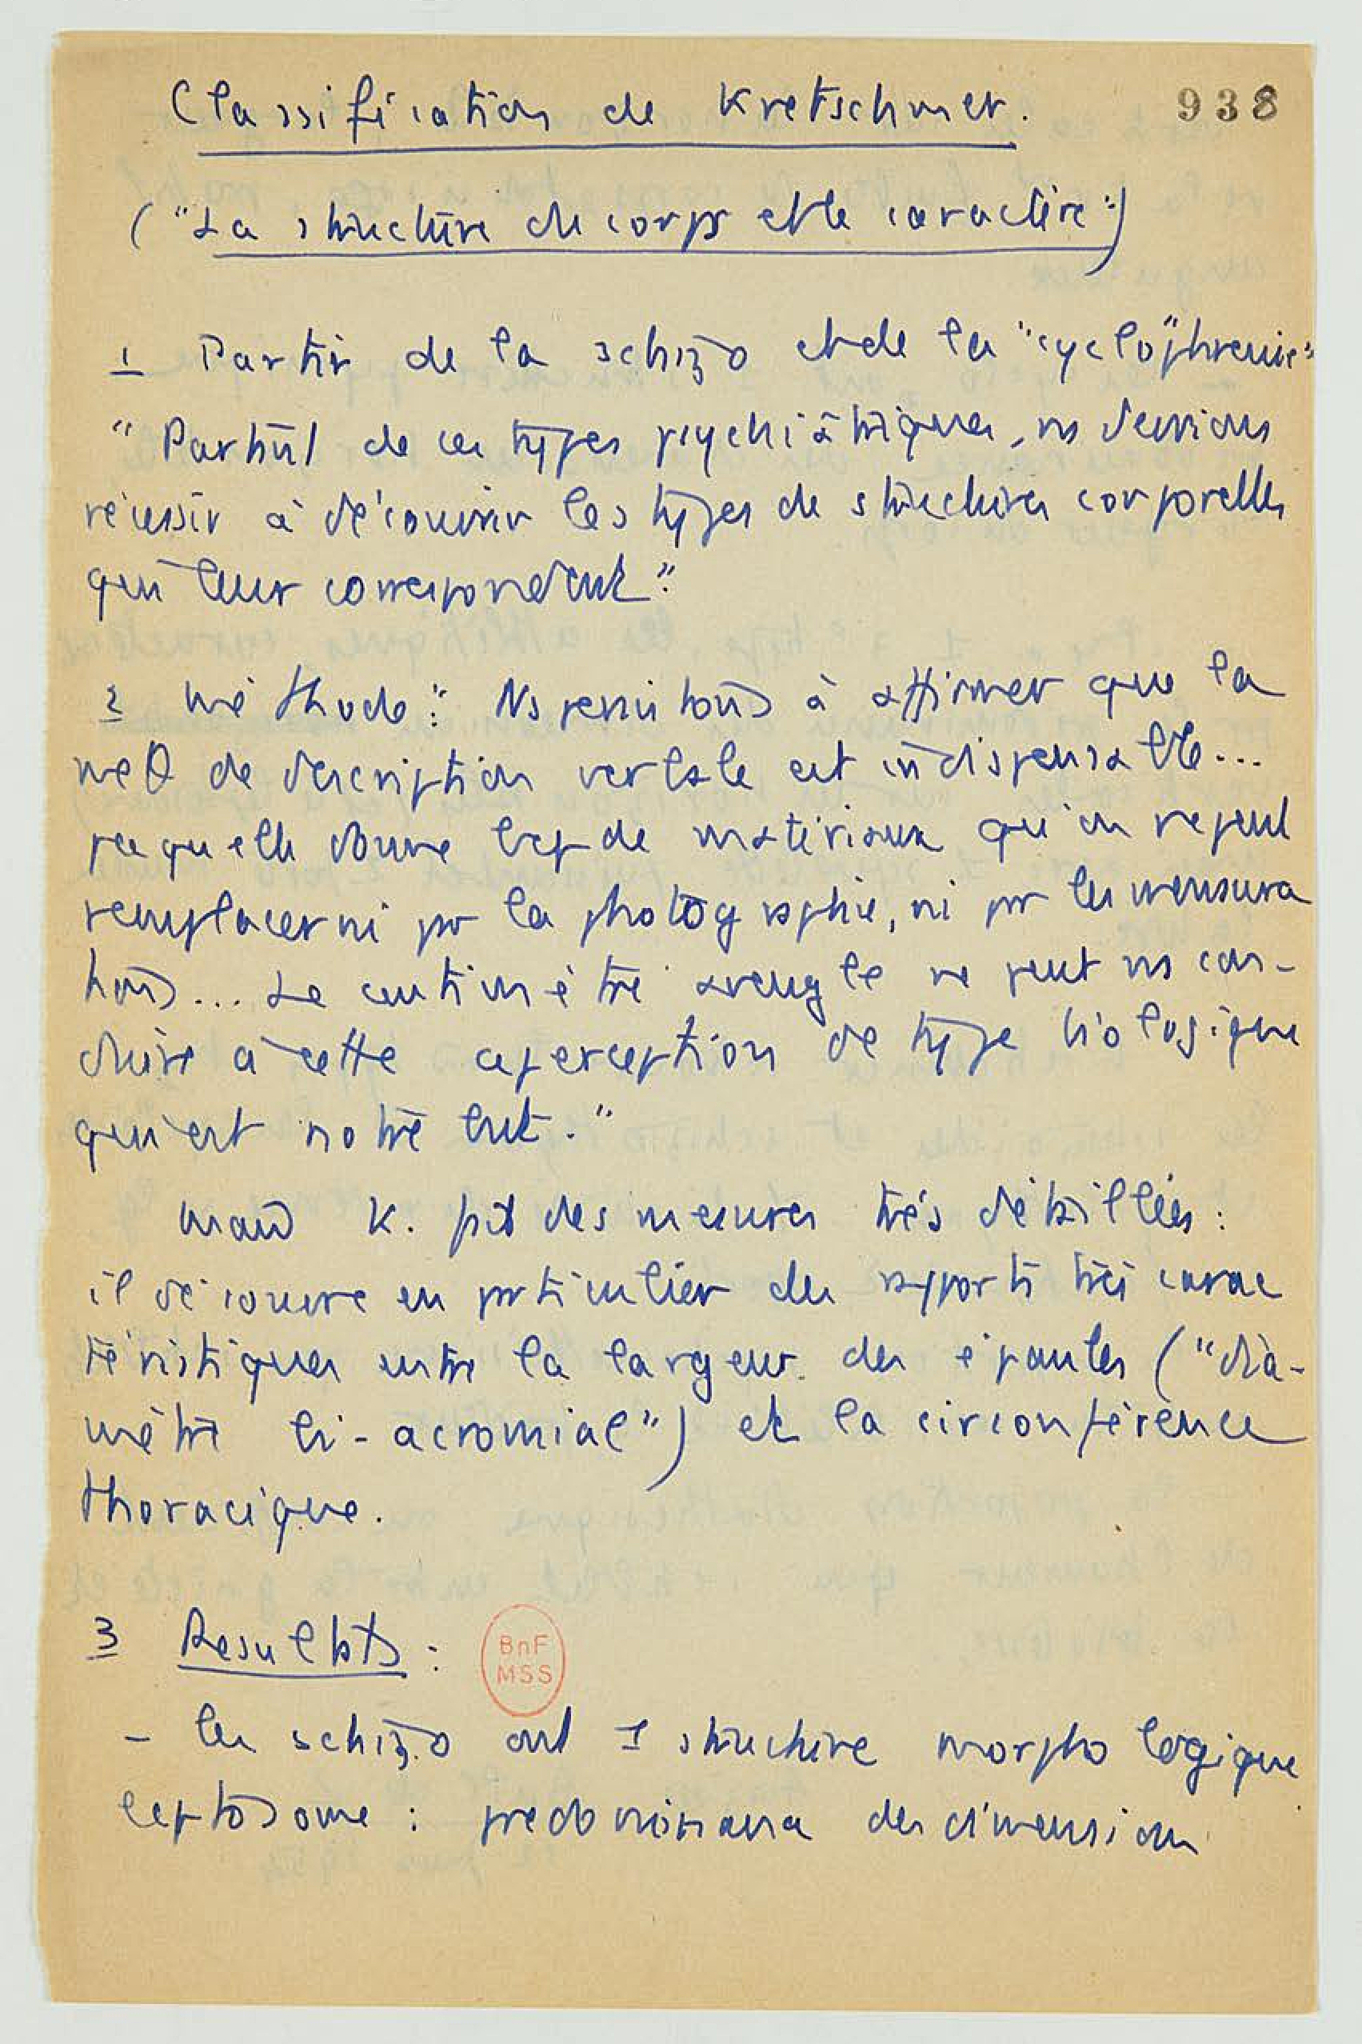 Classification de Kretschmer. 938
("La structure du corps et le caractère")
1 Partir de la schizo et de la "cyclo"phrenie"
"Partant de ces types psychiatriques, ns devrions
réussir à découvrir les types de structures corporelles
qui leur correspondent"
2 méthode: "Ns persistons à affirmer que la
méθ de description verbale est indispensable...
parce qu'elle donne bcp de matériaux qu'on ne peut
remplacer ni par la photographie, ni par les mensura
tions... Le centimètre aveugle ne peut ns con-
duire à cette aperception de type biologique
qui est notre but."
mais K. fait des mesures très détaillées:
il découvre en particulier des rapports très carac
téristiques entre la largeur des épaules ("dia-
mètre bi-acromial") et la circonférence
thoracique.
3 Resultats:
BnF
MSS
- les schizo ont 1 structure morphologique
leptosome: predominance des dimensions